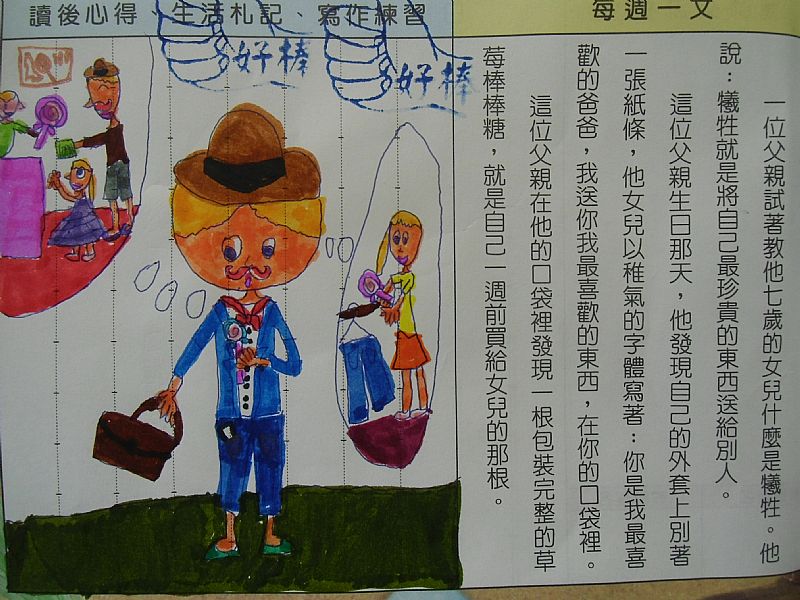 每週一文
讀後心得、生活札記、寫作練習
一位父親試著教他七歲的女兒什麼是犧牲。他
說：犧牲就是將自己最珍貴的東西送給別人。
這位父親生日那天，他發現自己的外套上別著
一張紙條，他女兒以稚氣的字體寫著：你是我最喜
歡的爸爸，我送你我最喜歡的東西，在你的口袋裡。
這位父親在他的口袋裡發現一根包裝完整的草
莓棒棒糖，就是自己一週前買給女兒的那根。
好棒
好棒